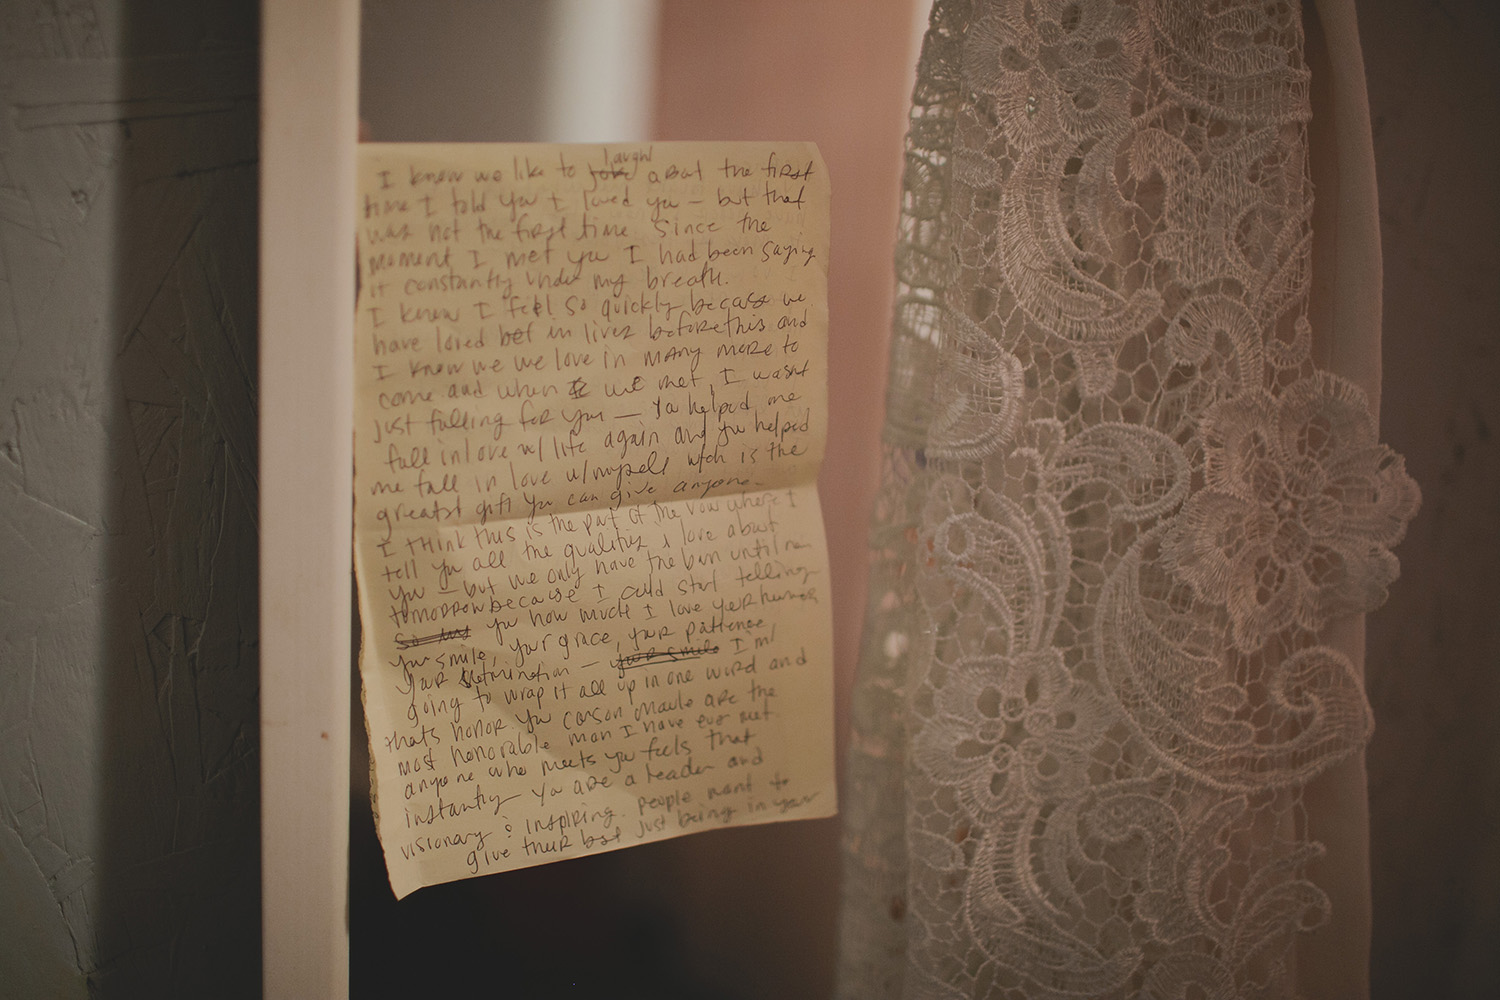 I know we like to joke laugh about the first
time I told you I loved you — but that
was not the first time. Since the
moment I met you I had been saying
it constantly under my breath.
I know I feel so quickly because we
have loved bef in lives before this and
I know we we love in many more to
come and when I we met, I wasnt
just falling for you — You helped me
fall in love w/ life again and you helped
me fall in love w/ myself wich is the
greatest gift you can give anyone.
I think this is the part of the vow where I
tell you all the qualities I love about
you — but we only have the barn until
tomorrow because I could start telling
So and you how much I love your humor,
your smile, your grace, your patience
your determination — your smile I'm
going to wrap it all up in one word and
thats honor you carson are the
most honorable man I have ever met.
anyone who meets you feels that
instantly. You are a leader and
visionary & inspiring. people want to
give their best just being in your